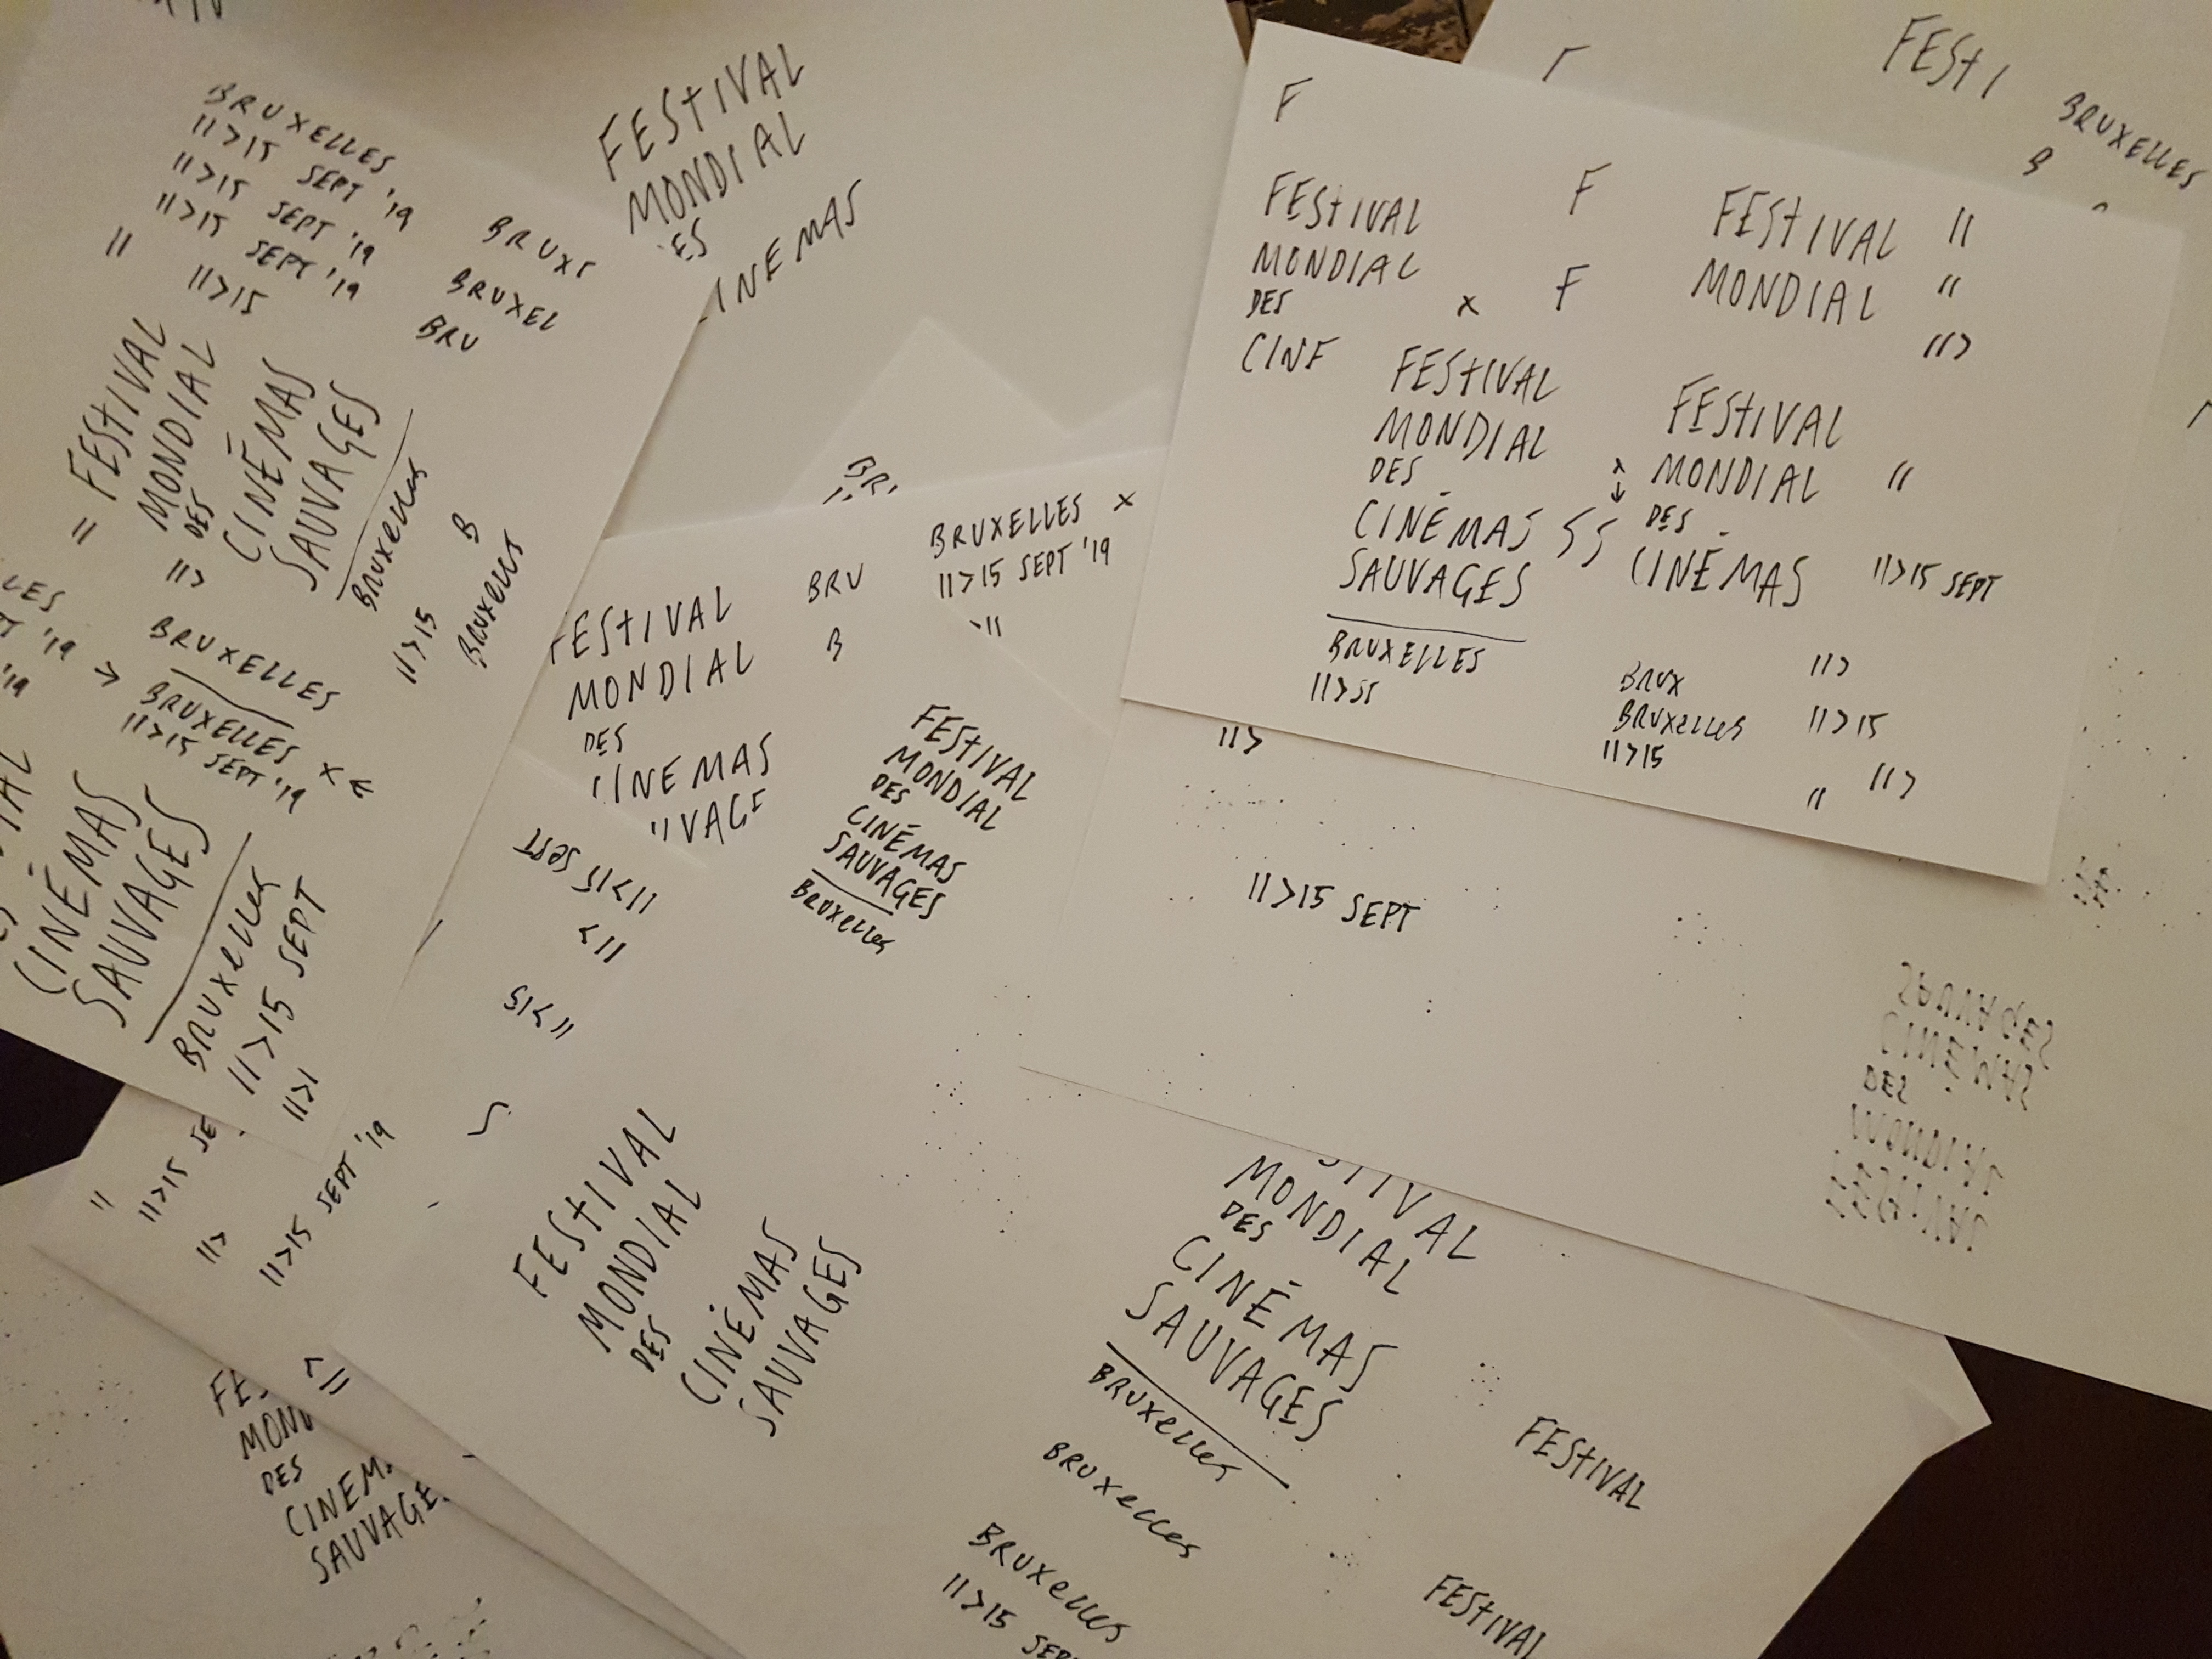 BRUXELLES
11>15 SEPT '19
11>15 SEPT '19
11>15 SEPT '19
11
11>15
BRUX
BRUXEL
BRU
FESTIVAL
MONDIAL
DES
CINÉMAS
SAUVAGES
BRUXelles
11>15
B
BRUXelles
11
11>
LES
'19
'19
BRUXELLES
BRUXELLES
11>15 SEPT '19 x
CINÉMAS
SAUVAGES
BRUXelles
11>15 SEPT
11>1
FESTIVAL
MONDIAL
ES
INEMAS
FESTI
BRUXELLES
B
F
FESTIVAL
MONDIAL
DES
CINE
x
F
F
FESTIVAL
MONDIAL
11
11
11>
FESTIVAL
MONDIAL
DES
CINÉMAS SS
SAUVAGES
BRUXELLES
11>55
x
FESTIVAL
MONDIAL
DES
CINÉMAS
11
11>15 SEPT
BRUX
BRUXelles
11>15
11>
11>15
11>
11
BR
BRUXELLES x
11>15 SEPT '19
11
BRU
B
FESTIVAL
MONDIAL
DES
INEMAS
VAGE
FESTIVAL
MONDIAL
DES
CINÉMAS
SAUVAGES
BRUXelles
11>15 SEPT
11>
11>15
11>
11>15 SEPT
FESTIVAL
MONDIAL
DES
CINÉMAS
SAUVAGES
11
11>15 SE
11>
11>15 SEPT '19
11>
FES
MOND
DES
CINEM
SAUVAGE
FESTIVAL
MONDIAL
DES
CINÉMAS
SAUVAGES
TIVAL
MONDIAL
DES
CINÉMAS
SAUVAGES
BRUXelles
BRUXelles
BRUXelles
11>15 SEP
FESTIVAL
FESTIVAL